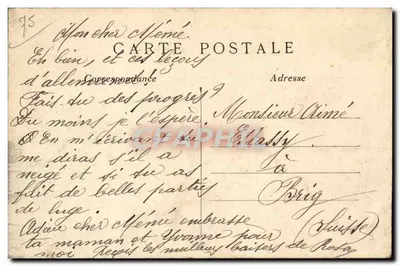 75
Mon cher Mémé
CARTE POSTALE
Eh bien, et ces leçons
Correspondance
Adresse
d'allemand!
Fais-tu des progrès?
Du moins je l'espère
En m'écrivant tu
me diras s'il a
neigé et si tu as
fait de belles parties
de luge
Adieu cher Mémé embrasse
ta maman et Yvonne pour
moi reçois les meilleurs baisers de Rosa
Monsieur Aimé
à
Brig
(Suisse)